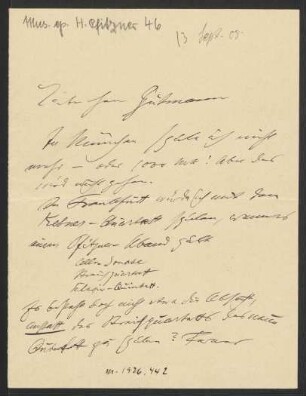 Mus. ep. H. Pfitzner 46
13 Sept. 05.
Lieber Herr Gutmann
In München spiele ich nicht
mehr – oder 1000 M! Aber das
wird nicht gehen.
In Frankfurt würde ich mit dem
Rebner-Quartett spielen, wenn es
einen Pfitzner Abend gäbe
Cello Sonate
Streichquartett
Klavier-Quintett.
Es besteht doch nicht etwa die Absicht,
anstatt des Streichquartetts das
Quintett zu spielen? Ferner
M. 1926.442